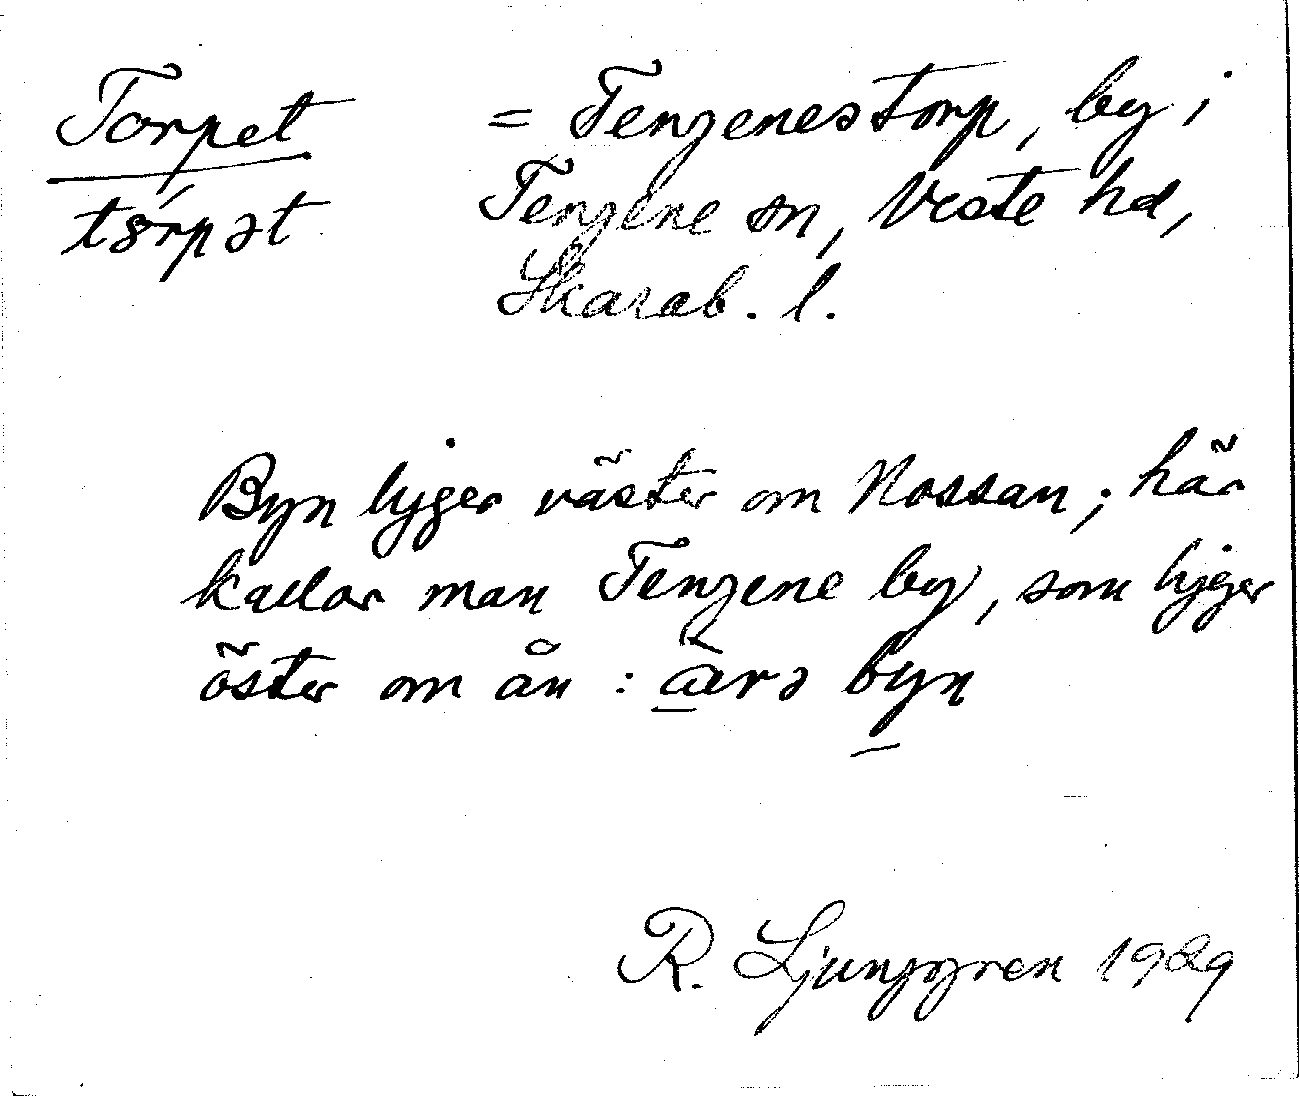 Torpet = Tengenestorp, by i
tɵ́rpət Tengene sn, Viste hd,
Skarab. l.
Byn ligger väster om Nossan; här
kallar man Tengene by, som ligger
öster om ån : byn
R. Ljunggren 1929